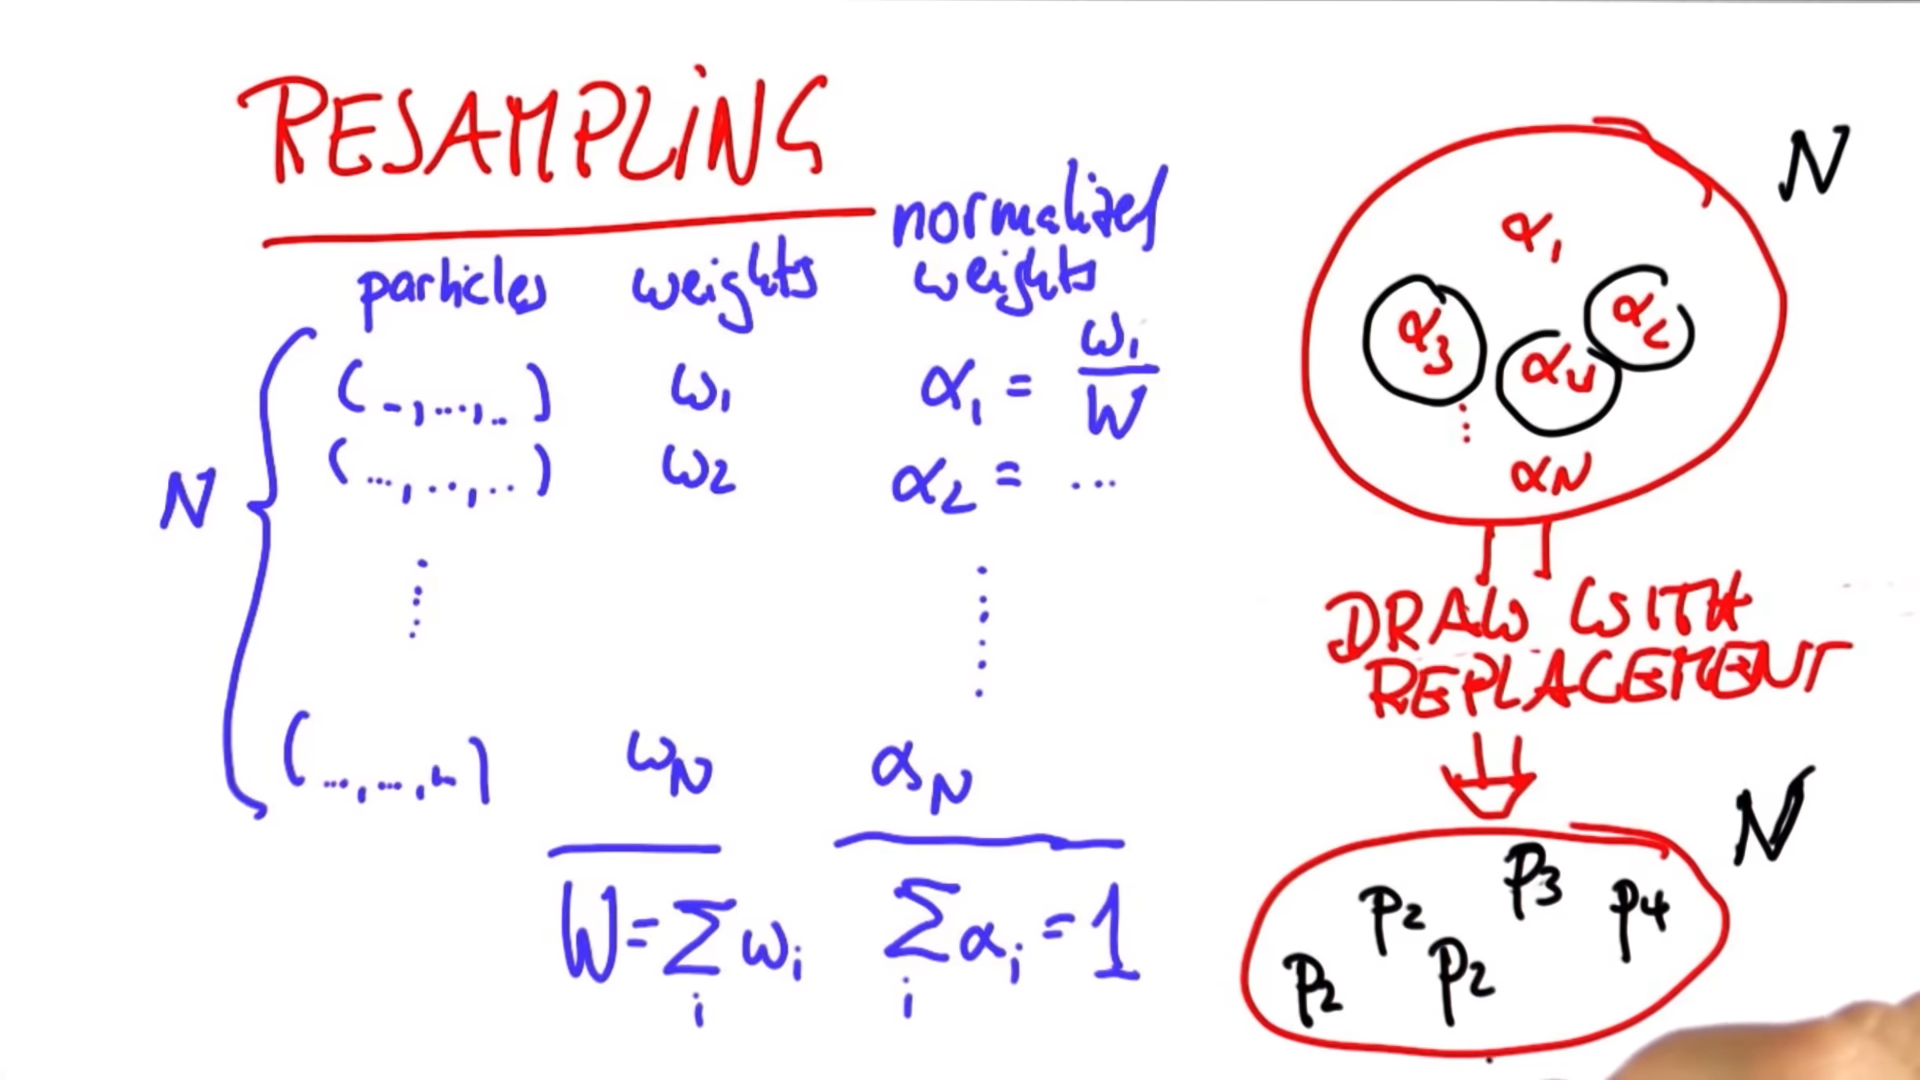 RESAMPLING
particles weights normalized weights
N
(-,...,..) ω1 α1 = ω1/W
(...,...,..) ω2 α2 = ...
(...,...,...) ωN αN
W = Σi ωi Σi αi = 1
N
α1
α3 α4 α2
αN
DRAW WITH
REPLACEMENT
N
p2 p2 p2 p3 p4